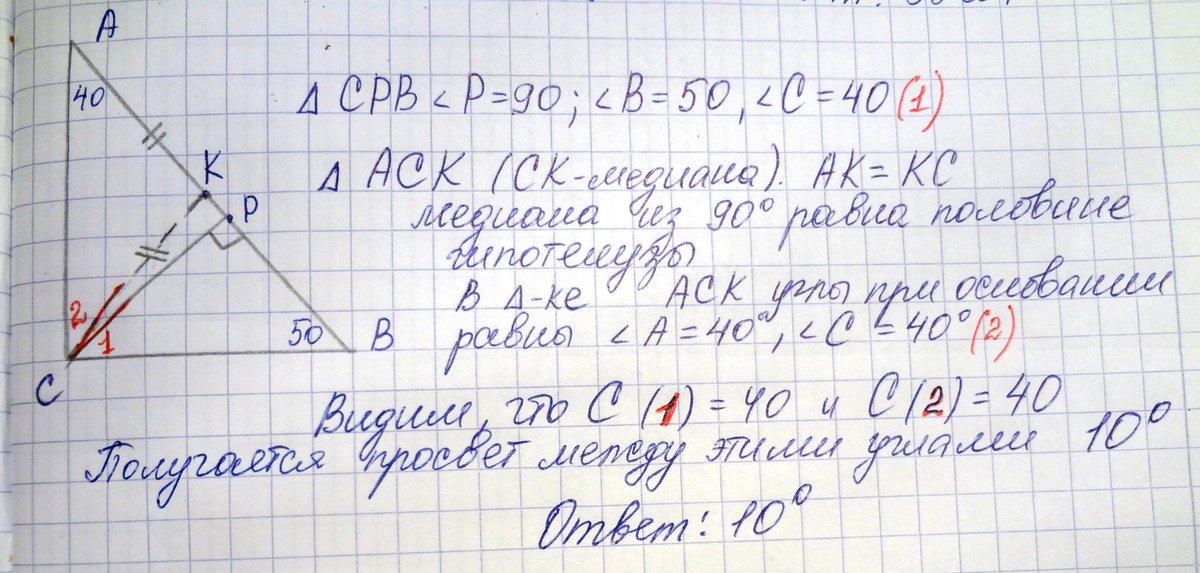 A
40
K
P
2
1
50
B
C
Δ CPB < P = 90; < B = 50, < C = 40 (1)
Δ ACK (CK-медиана). AK = KC
медиана из 90° равна половине
гипотенузы
В Δ-ке ACK углы при основании
равны < A = 40°, < C = 40° (2)
Видим, что C (1) = 40 и C (2) = 40
Получается просвет между этими углами 10°
Ответ: 10°